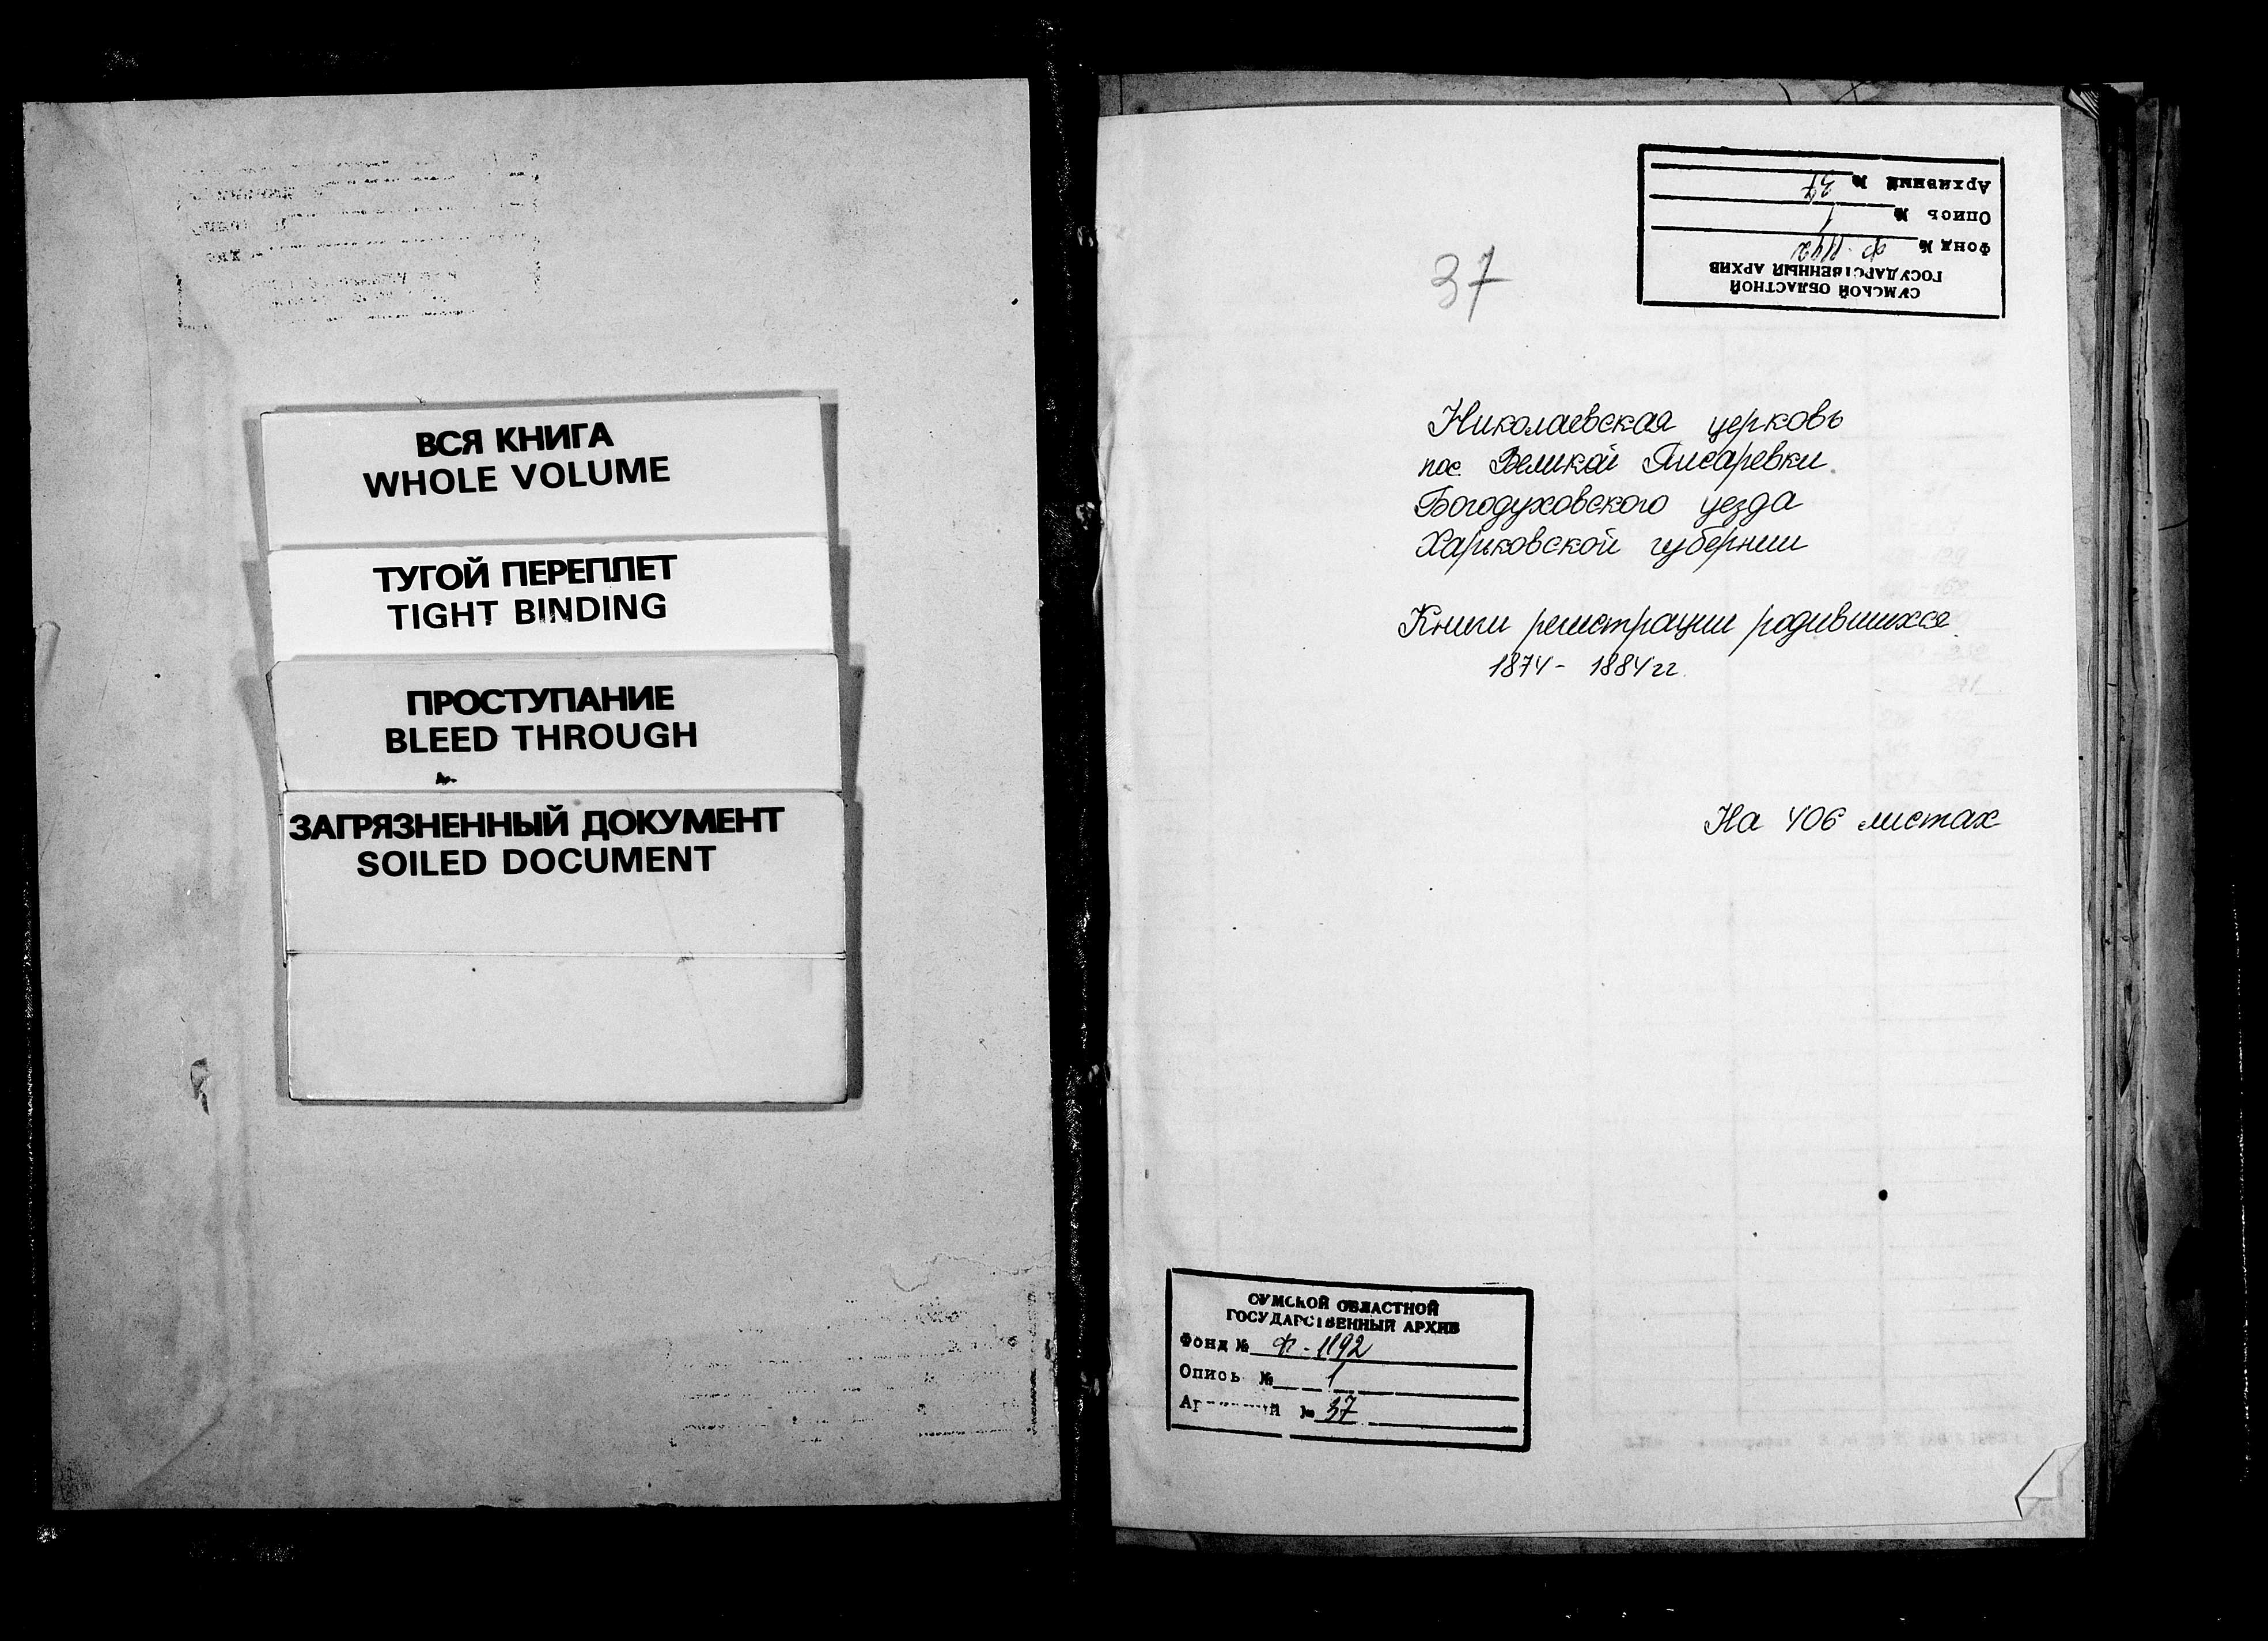 ВСЯ КНИГА
WHOLE VOLUME
ТУГОЙ ПЕРЕПЛЕТ
TIGHT BINDING
ПРОСТУПАНИЕ
BLEED THROUGH
ЗАГРЯЗНЕННЫЙ ДОКУМЕНТ
SOILED DOCUMENT
СУМСКОЙ ОБЛАСТНОЙ
ГОСУДАРСТВЕННЫЙ АРХИВ
Фонд № Ф-1192
Опись № 1
Архивный № 37
37
Николаевская церковь
пос. Великой Писаревки
Богодуховского уезда
Харьковской губернии
Книги регистрации родившихся
1874 - 1884 гг.
На 406 листах
СУМСКОЙ ОБЛАСТНОЙ
ГОСУДАРСТВЕННЫЙ АРХИВ
Фонд № Ф-1192
Опись № 1
№ 37